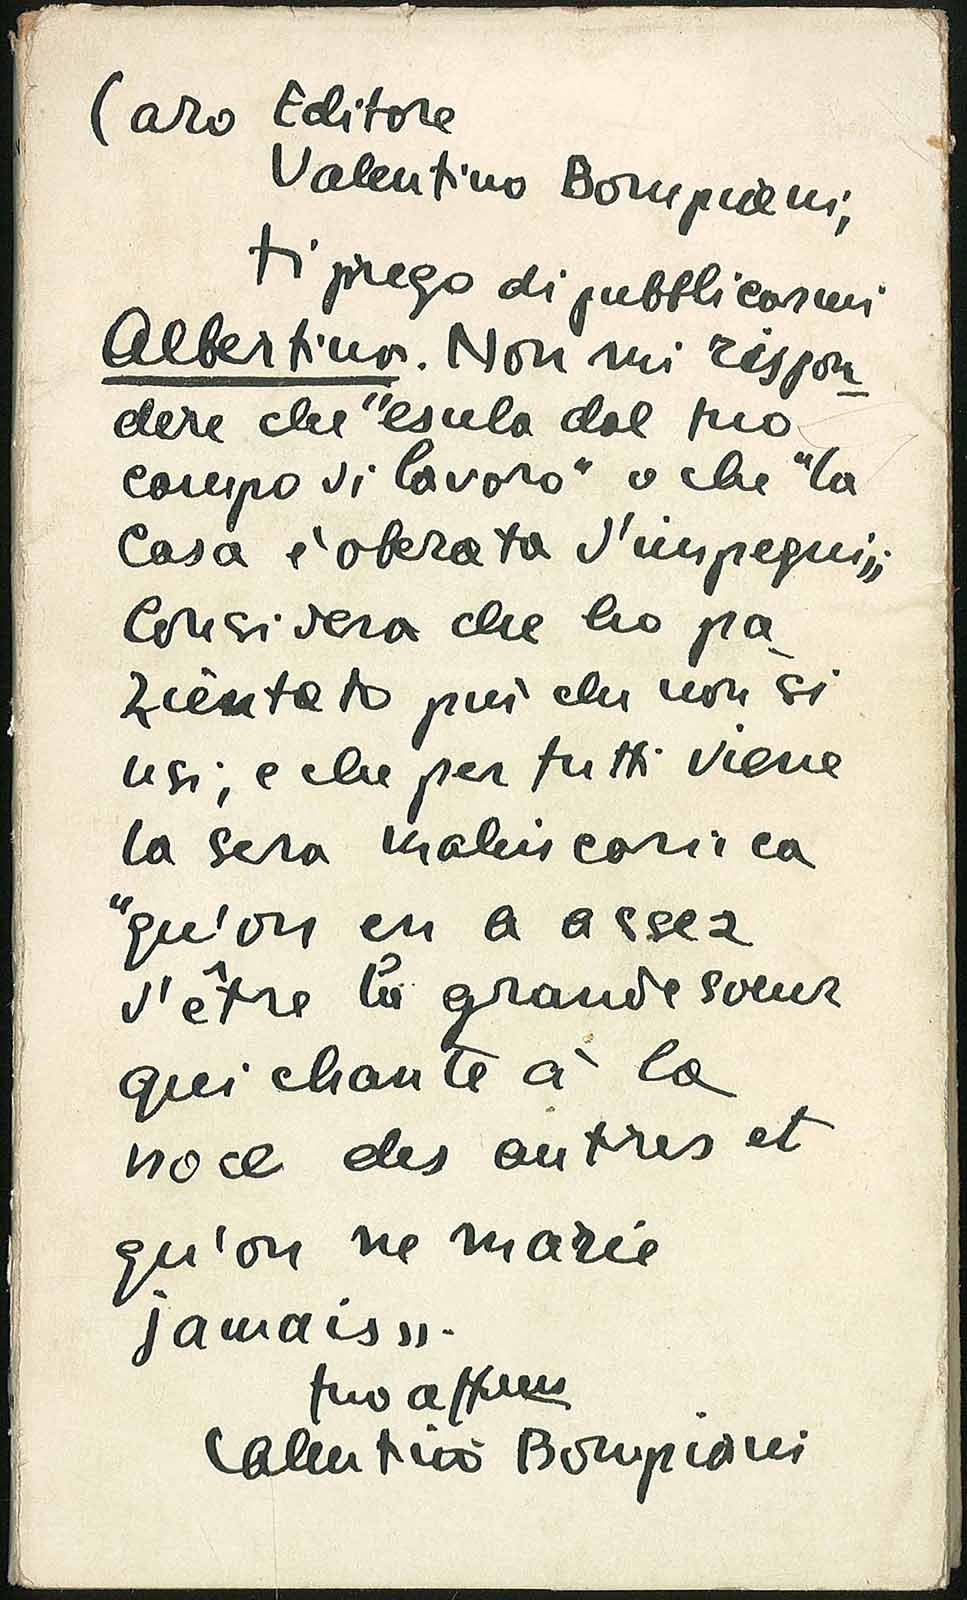 Caro Editore
Valentino Bompiani,
ti prego di pubblicarmi
Albertina. Non mi rispon
dere che "esula dal tuo
campo di lavoro" o che "la
Casa è oberata d'impegni„;
Considera che ho pa
zientato più che non si
usi; e che per tutti viene
la sera malinconica
"qu'on en a assez
d'être la grande soeur
qui chante à la
noce des autres et
qu'on ne marie
jamais„.
tuo affmo
Valentino Bompiani